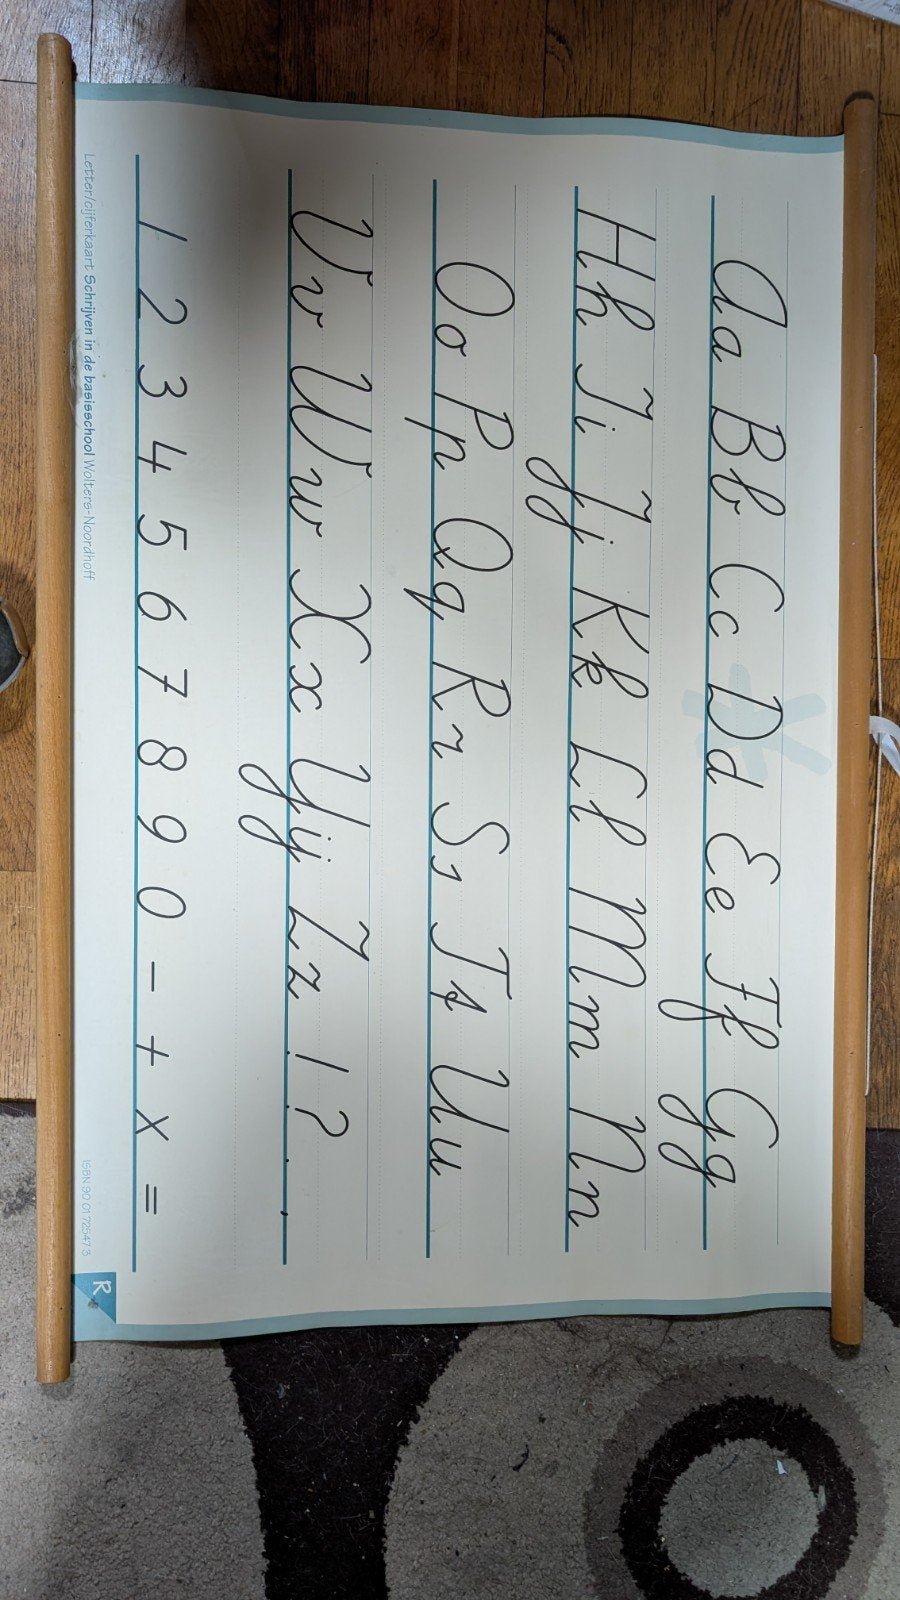 Aa Bb Cc Dd Ee Ff Gg
Hh Ii Jj Kk Ll Mm Nn
Oo Pp Qq Rr Ss Tt Uu
Vv Ww Xx IJij Zz ! ? . ,
1 2 3 4 5 6 7 8 9 0 - + x =
Letter/cijferkaart Schrijven in de basisschool Wolters-Noordhoff
ISBN 90 01 72547 3
R